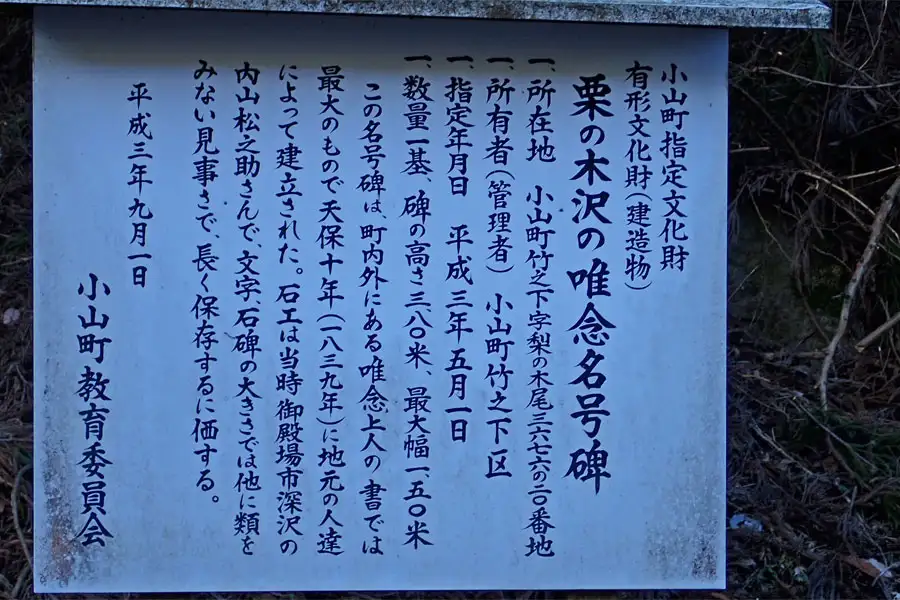 小山町指定文化財
有形文化財(建造物)
栗の木沢の唯念名号碑
一、所在地 小山町竹之下字梨の木尾三六七六の二〇番地
一、所有者(管理者) 小山町竹之下区
一、指定年月日 平成三年五月一日
一、数量一基、碑の高さ三・八〇米、最大幅一・五〇米
この名号碑は、町内外にある唯念上人の書では
最大のもので天保十年(一八三九年)に地元の人達
によって建立された。石工は当時御殿場市深沢の
内山松之助さんで、文字、石碑の大きさでは他に類を
みない見事さで、長く保存するに価する。
平成三年九月一日
小山町教育委員会